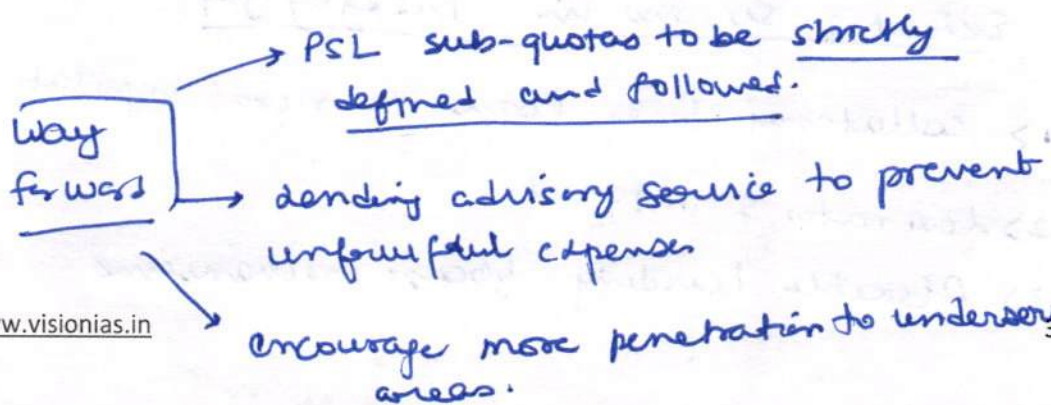 PSL sub-quotas to be strictly
defined and followed.
way
forward
Lending advisory service to prevent
unfruitful expenses
w.visionias.in
encourage more penetration to underser
areas.